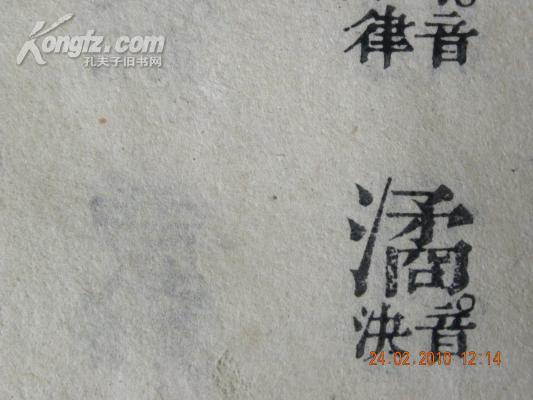 Kongfz.com
孔夫子旧书网
音律
潏
音決
24.02.2010 12:14